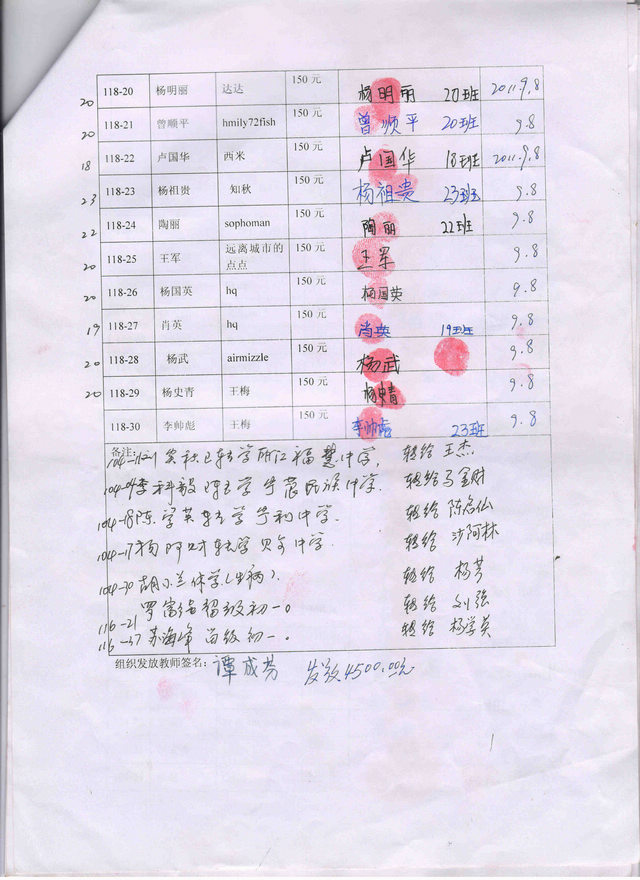 20 118-20 杨明丽 达达 150 元 杨明丽 20班 2011.9.8
20 118-21 曾顺平 hmily72fish 150 元 曾顺平 20班 9.8
18 118-22 卢国华 西米 150 元 卢国华 18班 2011.9.8
23 118-23 杨祖贵 知秋 150 元 杨祖贵 23班 9.8
22 118-24 陶丽 sophoman 150 元 陶丽 22班 9.8
20 118-25 王军 远离城市的点点 150 元 王军 9.8
20 118-26 杨国英 hq 150 元 杨国英 9.8
19 118-27 肖英 hq 150 元 肖英 19班 9.8
20 118-28 杨武 airmizzle 150 元 杨武 9.8
20 118-29 杨史青 王梅 150 元 杨史青 9.8
118-30 李帅彪 王梅 150 元 李帅彪 23班 9.8
备注:
已转学 中学, 转给 王杰
李科毅 已转学 民族中学. 转给马金财
104-18陈 英转学 中学. 转给
104-17杨阿 转学 中学. 转给 沙阿林
104-30 胡小兰休学(生病). 转给 杨芳
116-21 罗富 留级初一。 转给 刘强
116-37 苏海峰 留级初一。 转给 杨学英
组织发放教师签名: 谭成芳 发放4500.00元